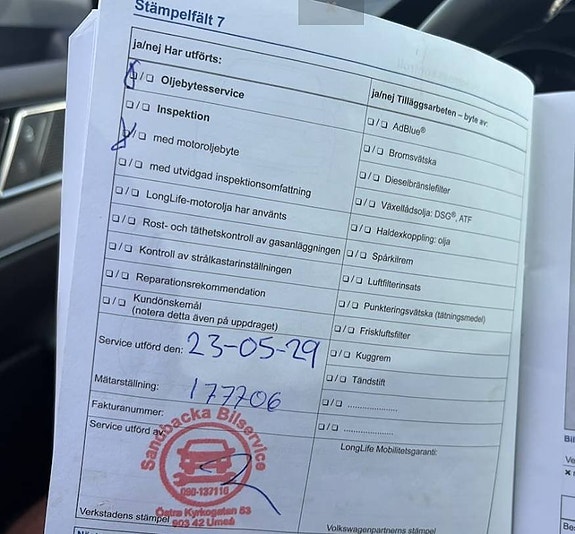 Stämpelfält 7
ja/nej Har utförts:
❑/❑ Oljebytesservice
❑/❑ Inspektion
❑/❑ med motoroljebyte
❑/❑ med utvidgad inspektionsomfattning
❑/❑ LongLife-motorolja har använts
❑/❑ Rost- och täthetskontroll av gasanläggningen
❑/❑ Kontroll av strålkastarinställningen
❑/❑ Reparationsrekommendation
❑/❑ Kundönskemål
(notera detta även på uppdraget)
Service utförd den: 23-05-29
Mätarställning: 177706
Fakturanummer:
Service utförd av
Sandbacka Bilservice
090-137110
Östra Kyrkogatan 53
903 42 Umeå
Verkstadens stämpel
ja/nej Tilläggsarbeten – byte av:
❑/❑ AdBlue®
❑/❑ Bromsvätska
❑/❑ Dieselbränslefilter
❑/❑ Växellådsolja: DSG®, ATF
❑/❑ Haldexkoppling: olja
❑/❑ Spårkilrem
❑/❑ Luftfilterinsats
❑/❑ Punkteringsvätska (tätningsmedel)
❑/❑ Friskluftsfilter
❑/❑ Kuggrem
❑/❑ Tändstift
❑/❑ ....................
❑/❑ ....................
LongLife Mobilitetsgaranti:
Volkswagenpartnerns stämpel